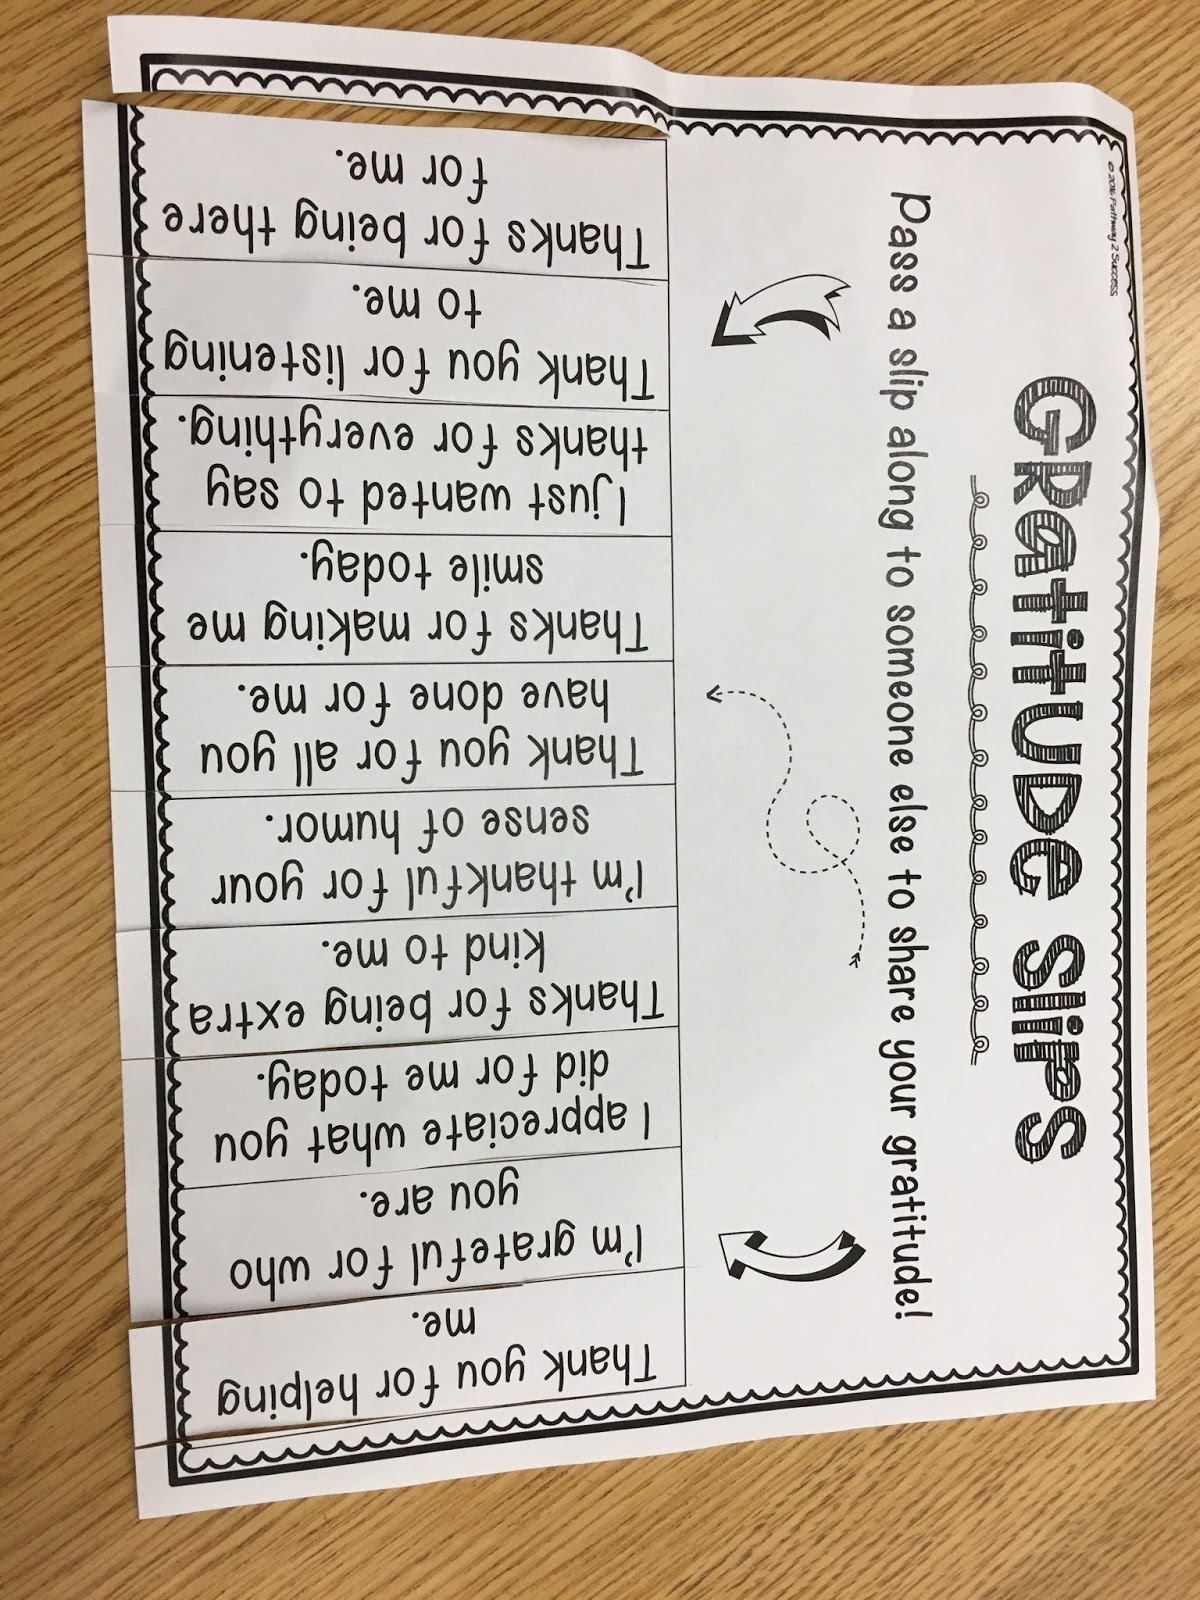 GRatituDe SliPS
Pass a slip along to someone else to share your gratitude!
Thanks for being there
for me.
Thank you for listening
to me.
I just wanted to say
thanks for everything.
Thanks for making me
smile today.
Thank you for all you
have done for me.
I'm thankful for your
sense of humor.
Thanks for being extra
kind to me.
I appreciate what you
did for me today.
I'm grateful for who
you are.
Thank you for helping
me.
© 2016 Pathway 2 Success